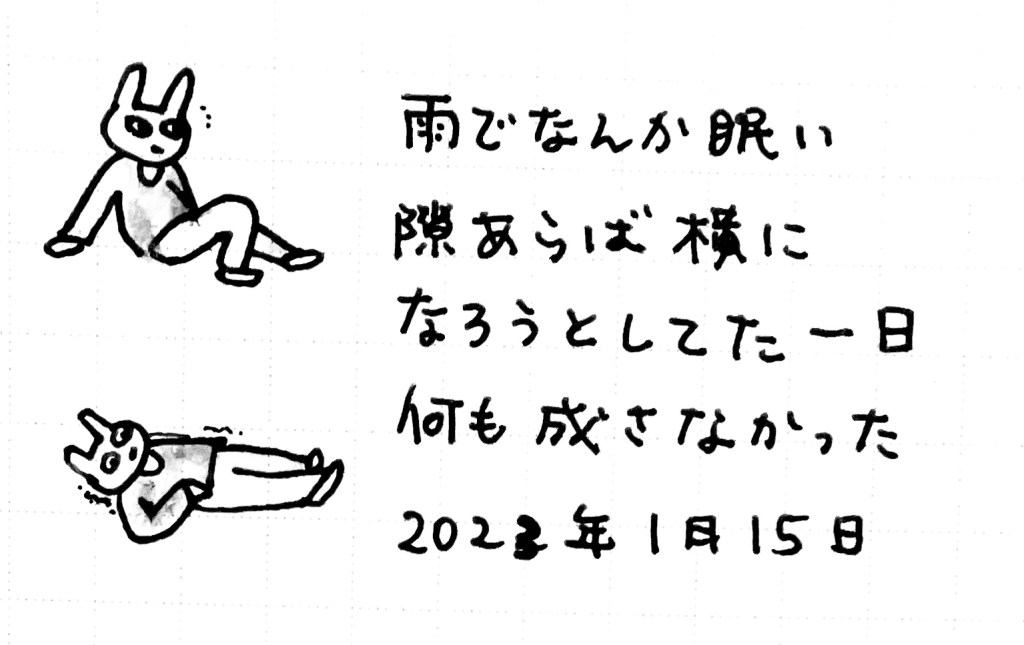 雨でなんか眠い
隙あらば横に
なろうとしてた一日
何も成さなかった
2023年1月15日